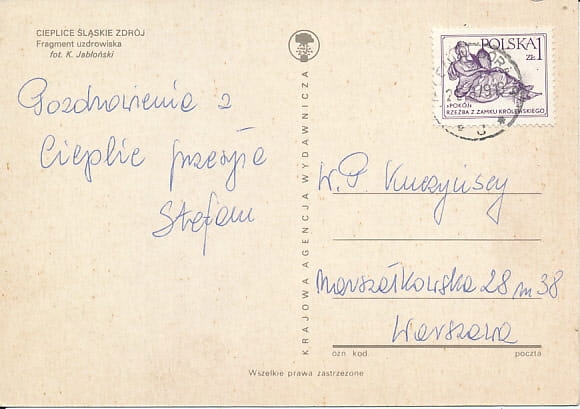 CIEPLICE ŚLĄSKIE ZDRÓJ
Fragment uzdrowiska
fot. K. Jabłoński
Pozdrowienia z
Cieplic przesyła
Stefan
KRAJOWA AGENCJA WYDAWNICZA
POLSKA 1
ZŁ
»POKÓJ«
RZEŹBA Z ZAMKU KRÓLEWSKIEGO
W.P. Kuczyńscy
Marszałkowska 28 m 38
Warszawa
ozn kod
poczta
Wszelkie prawa zastrzeżone